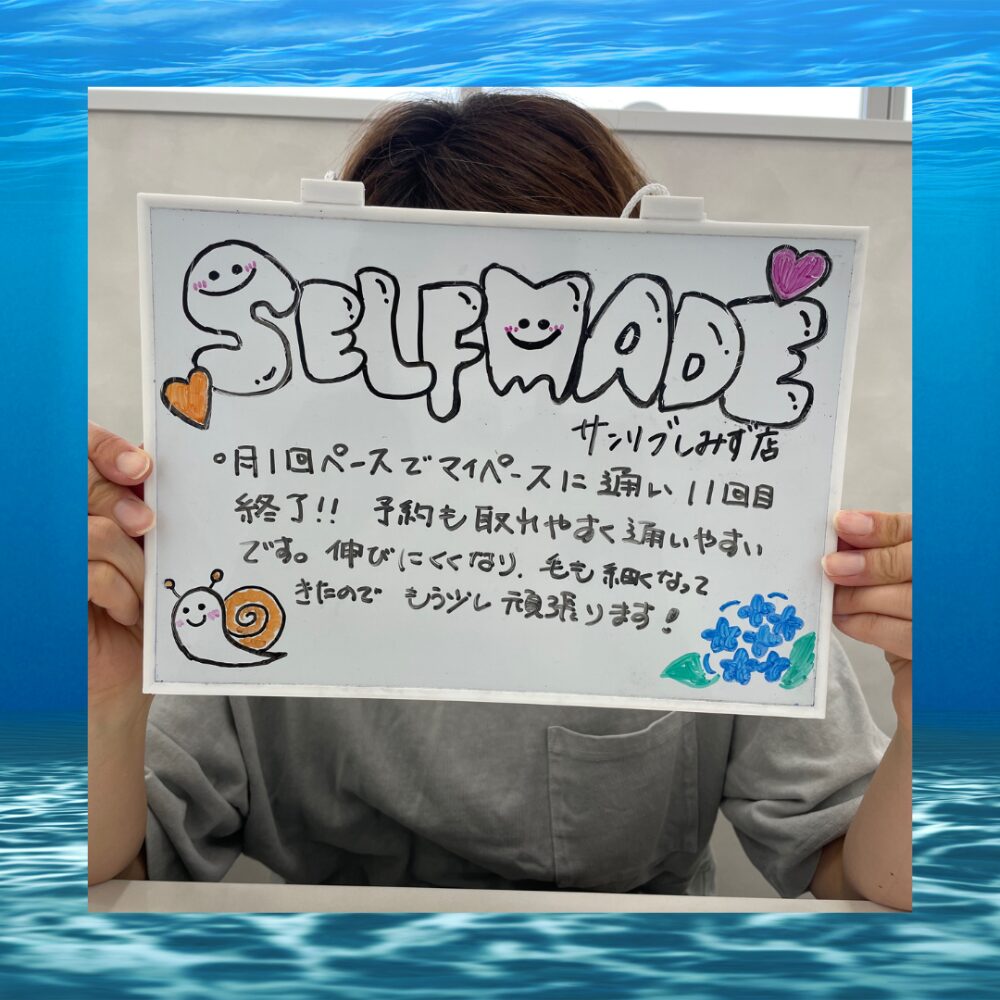 SELFMADE
サンリブしみず店
°月1回ペースでマイペースに通い11回目
終了!! 予約も取れやすく通いやすい
です。伸びにくくなり、毛も細くなって
きたので もう少し頑張ります!